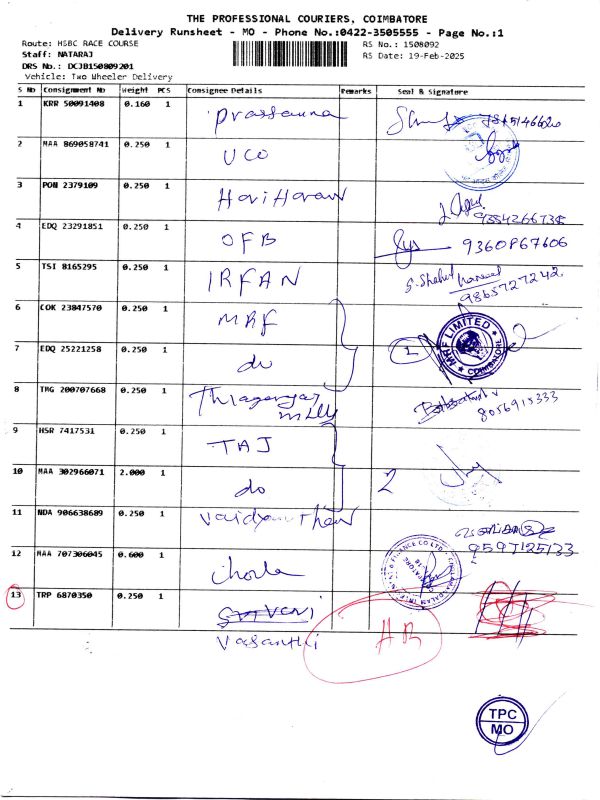 THE PROFESSIONAL COURIERS, COIMBATORE
Delivery Runsheet - MO - Phone No.:0422-3505555 - Page No.:1
Route: HSBC RACE COURSE
RS No.: 1508092
Staff: NATARAJ
RS Date: 19-Feb-2025
DRS No.: DCJB150809201
Vehicle: Two Wheeler Delivery
S No Consignment No Weight PCS Consignee Details Remarks Seal & Signature
1 KRR 50091408 0.160 1 Prassanna
2 MAA 869058741 0.250 1 UCO
3 PON 2379109 0.250 1 Hari Haran
9884266738
4 EDQ 23291851 0.250 1 OFB 9360867606
5 TSI 8165295 0.250 1 IRFAN
9865727242
6 COK 23847570 0.250 1 MRF
MRF LIMITED
COIMBATORE
7 EDQ 25221258 0.250 1 do 1
8 TMG 200707668 0.250 1 Thiagarajar
Mills
8056915333
9 HSR 7417531 0.250 1 TAJ
10 MAA 302966071 2.000 1 do 2
11 NDA 906638689 0.250 1 Vaidyanathan
9597125133
12 MAA 707306045 0.600 1 Chola
13 TRP 6870350 0.250 1
Vasanthi
TPC
MO